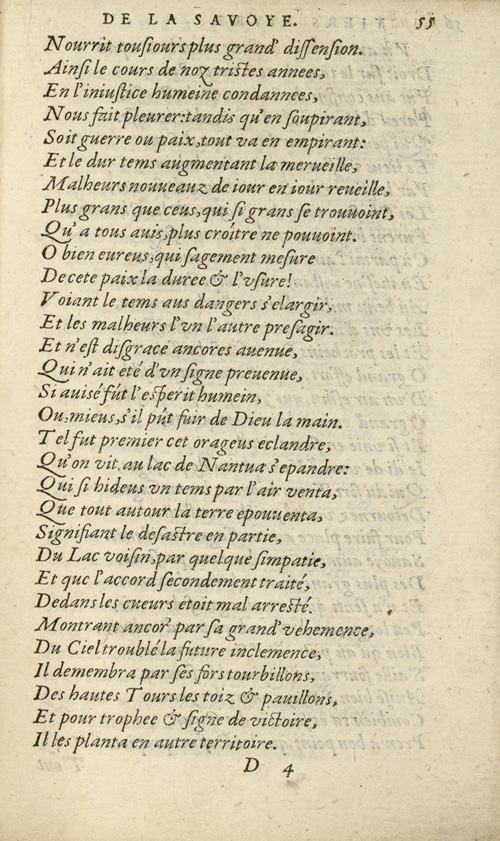 DE LA SAVOYE. 55
Nourrit tousiours plus grand' dissension.
Ainsi le cours de noz tristes annees,
En l'iniustice humeine condannees,
Nous fait pleurer: tandis qu'en soupirant,
Soit guerre ou paix, tout va en empirant:
Et le dur tems augmentant la merueille,
Malheurs nouueauz de iour en iour reueille,
Plus grans que ceus, qui si grans se trouuoint,
Qu'a tous auis, plus croítre ne pouuoint.
O bien eureus, qui sagement mesure
De cete paix la duree & l'vsure!
Voiant le tems aus dangers s'elargir,
Et les malheurs l'vn l'autre presagir.
Et n'est disgrace ancores auenue,
Qui n'ait eté d'vn signe preuenue,
Si auisé fút l'esperit humein,
Ou, mieus, s'il pút fuir de Dieu la main.
Tel fut premier cet orageus eclandre,
Qu'on vit au lac de Nantua s'epandre:
Qui si hideus vn tems par l'air venta,
Que tout autour la terre epouuenta,
Signifiant le desastre en partie,
Du Lac voisin, par quelque simpatie,
Et que l'accord secondement traité,
Dedans les cueurs etoit mal arresté.
Montrant ancor' par sa grand' vehemence,
Du Ciel troublé la future inclemence,
Il demembra par ses fors tourbillons,
Des hautes Tours les toiz & pauillons,
Et pour trophee & signe de victoire,
Il les planta en autre territoire.
D 4